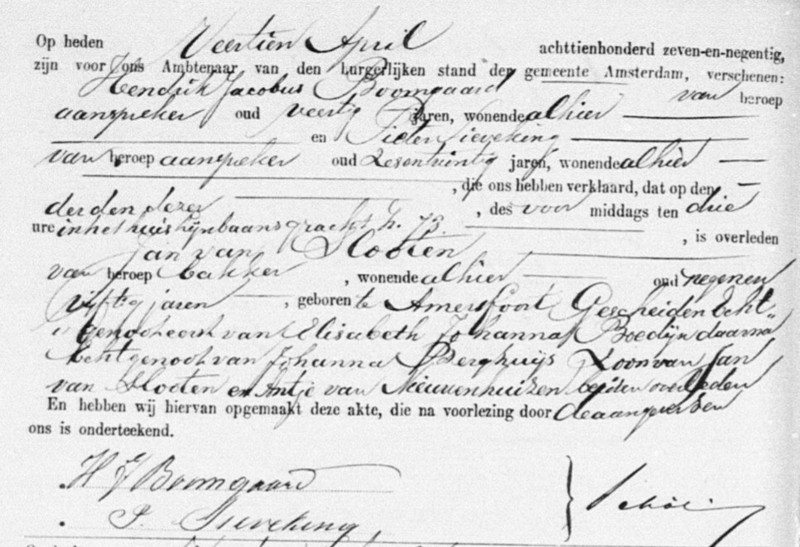 Op heden Veertien April achttienhonderd zeven-en-negentig,
zijn voor Ons Ambtenaar van den burgerlijken stand der gemeente Amsterdam, verschenen:
Hendrik Jacobus Boomgaard van beroep
aanspreker oud veertig jaren, wonende alhier
en Pieter Sieveking
van beroep aanspreker oud zesentwintig jaren, wonende alhier
, die ons hebben verklaard, dat op den
derden dezer , des voor middags ten drie
ure in het huis Lijnbaansgracht N. 73
, is overleden
Jan van Slooten
van beroep bakker , wonende alhier oud negenen
vijftig jaren , geboren te Amersfoort, Gescheiden Echt-
genoot eerst van Elisabeth Johanna Boedijn daarna
Echtgenoot van Johanna Berghuijs Zoon van Jan
van Slooten en Antje van Nieuwenhuizen beiden overleden
En hebben wij hiervan opgemaakt deze akte, die na voorlezing door de aansprekers en
ons is onderteekend.
H J Boomgaard
P. Sieveking